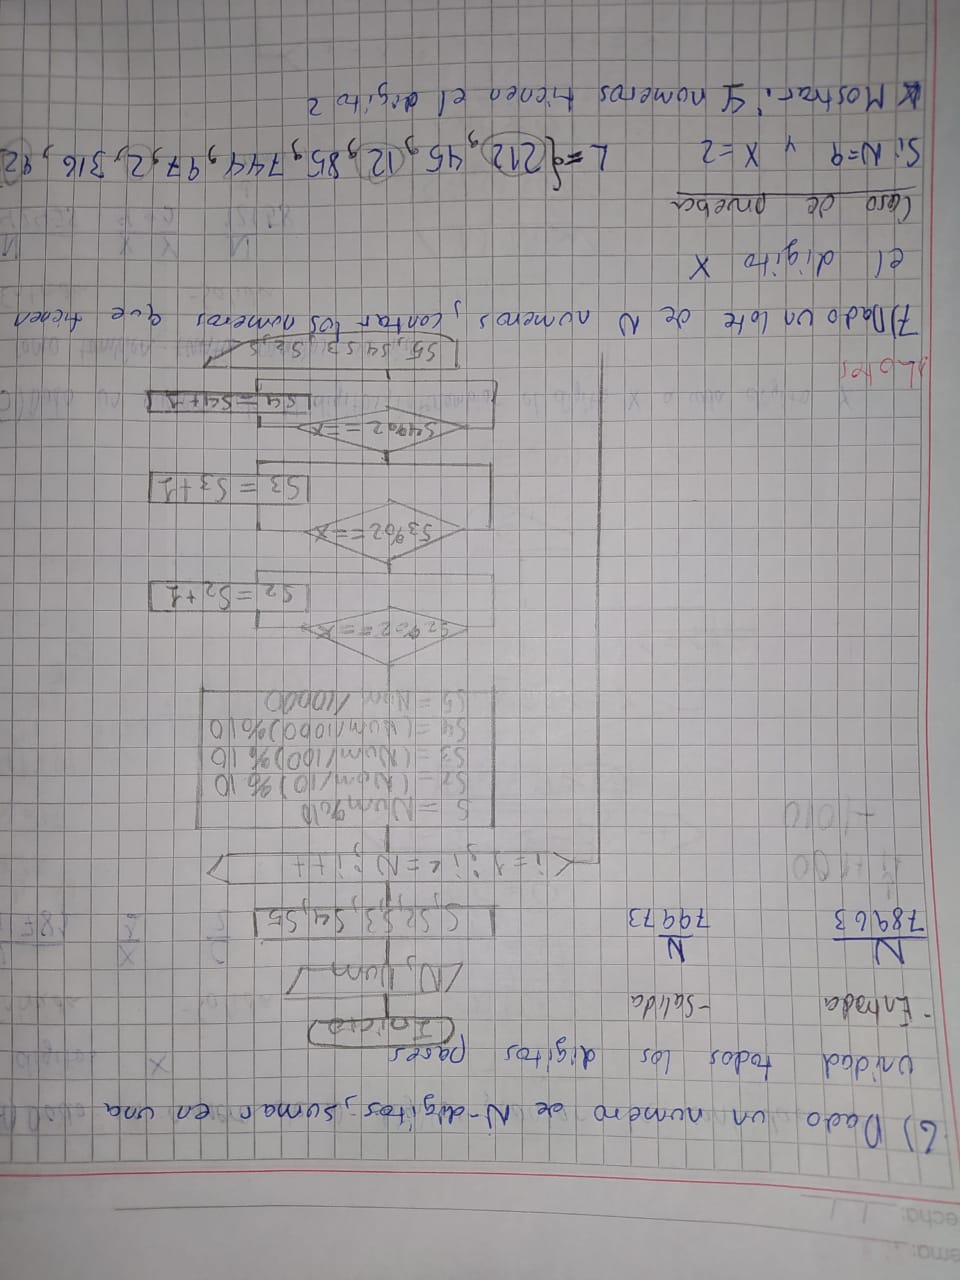 echa:
6) Dado un numero de N-digitos, sumar en una
unidad todos los digitos pares
-Entrada
-Salida
Inicio
N
78963
N
79973
N, Num
S, S2, S3, S4, S5
i=1; i<=N; i++
S = Num%10
S2 = (Num/10)%10
S3 = (Num/100)%10
S4 = (Num/1000)%10
S5 = Num/10000
S2%2==x
S2 = S2+1
S3%2==x
S3 = S3+1
S4%2==x
S4 = S4+1
S5, S4, S3, S2, S
Lotes
7) Dado un lote de N numeros, contar los numeros que tienen
el digito X
Caso de prueba
Si N=9 y X=2 L={212, 45, 12, 85, 744, 97, 2, 316, 92
Mostrar: 4 numeros tienen el digito 2